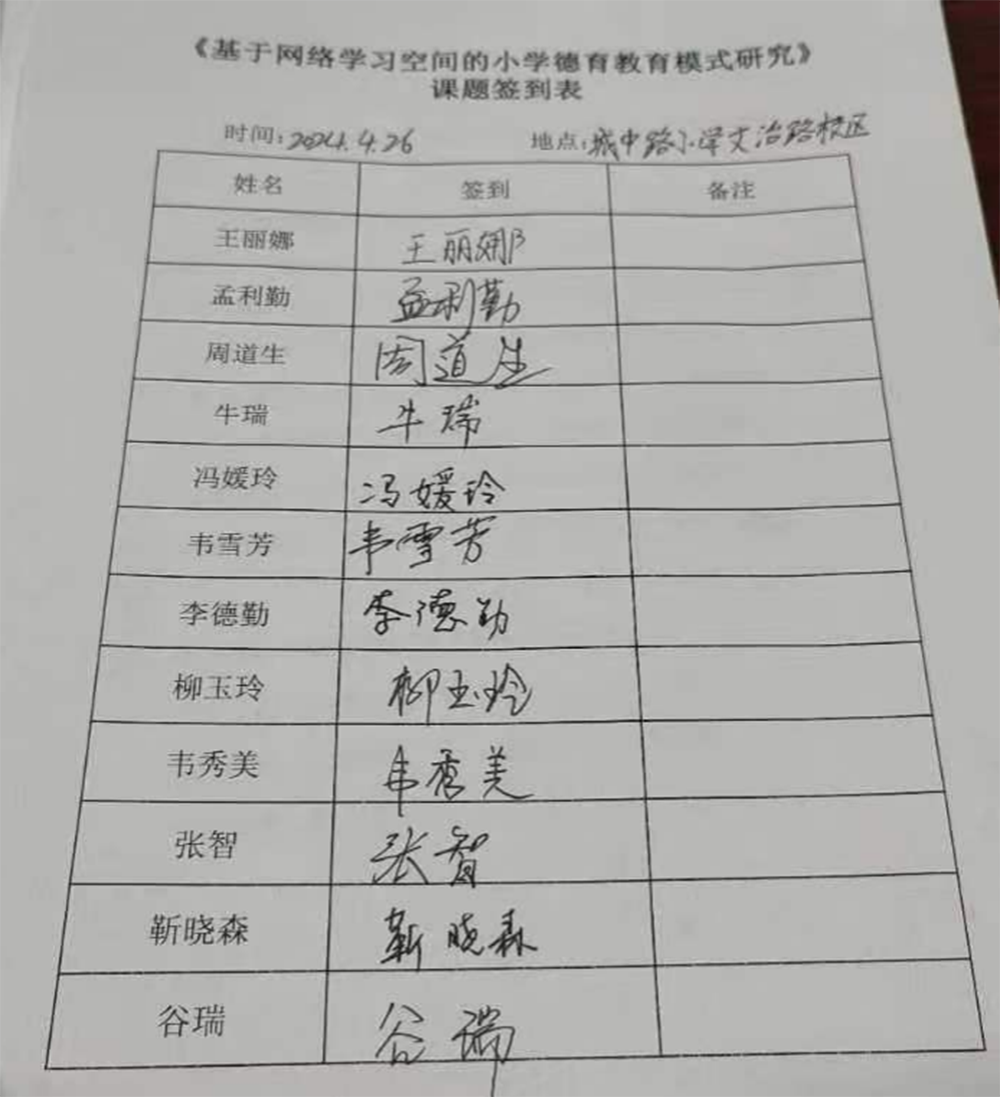 《基于网络学习空间的小学德育教育模式研究》
课题签到表
时间:2024.4.26 地点:城中路小学文治路校区
姓名 签到 备注
王丽娜 王丽娜
孟利勤 孟利勤
周道生 周道生
牛瑞 牛瑞
冯媛玲 冯媛玲
韦雪芳 韦雪芳
李德勤 李德勤
柳玉玲 柳玉玲
韦秀美 韦秀美
张智 张智
靳晓森 靳晓森
谷瑞 谷瑞